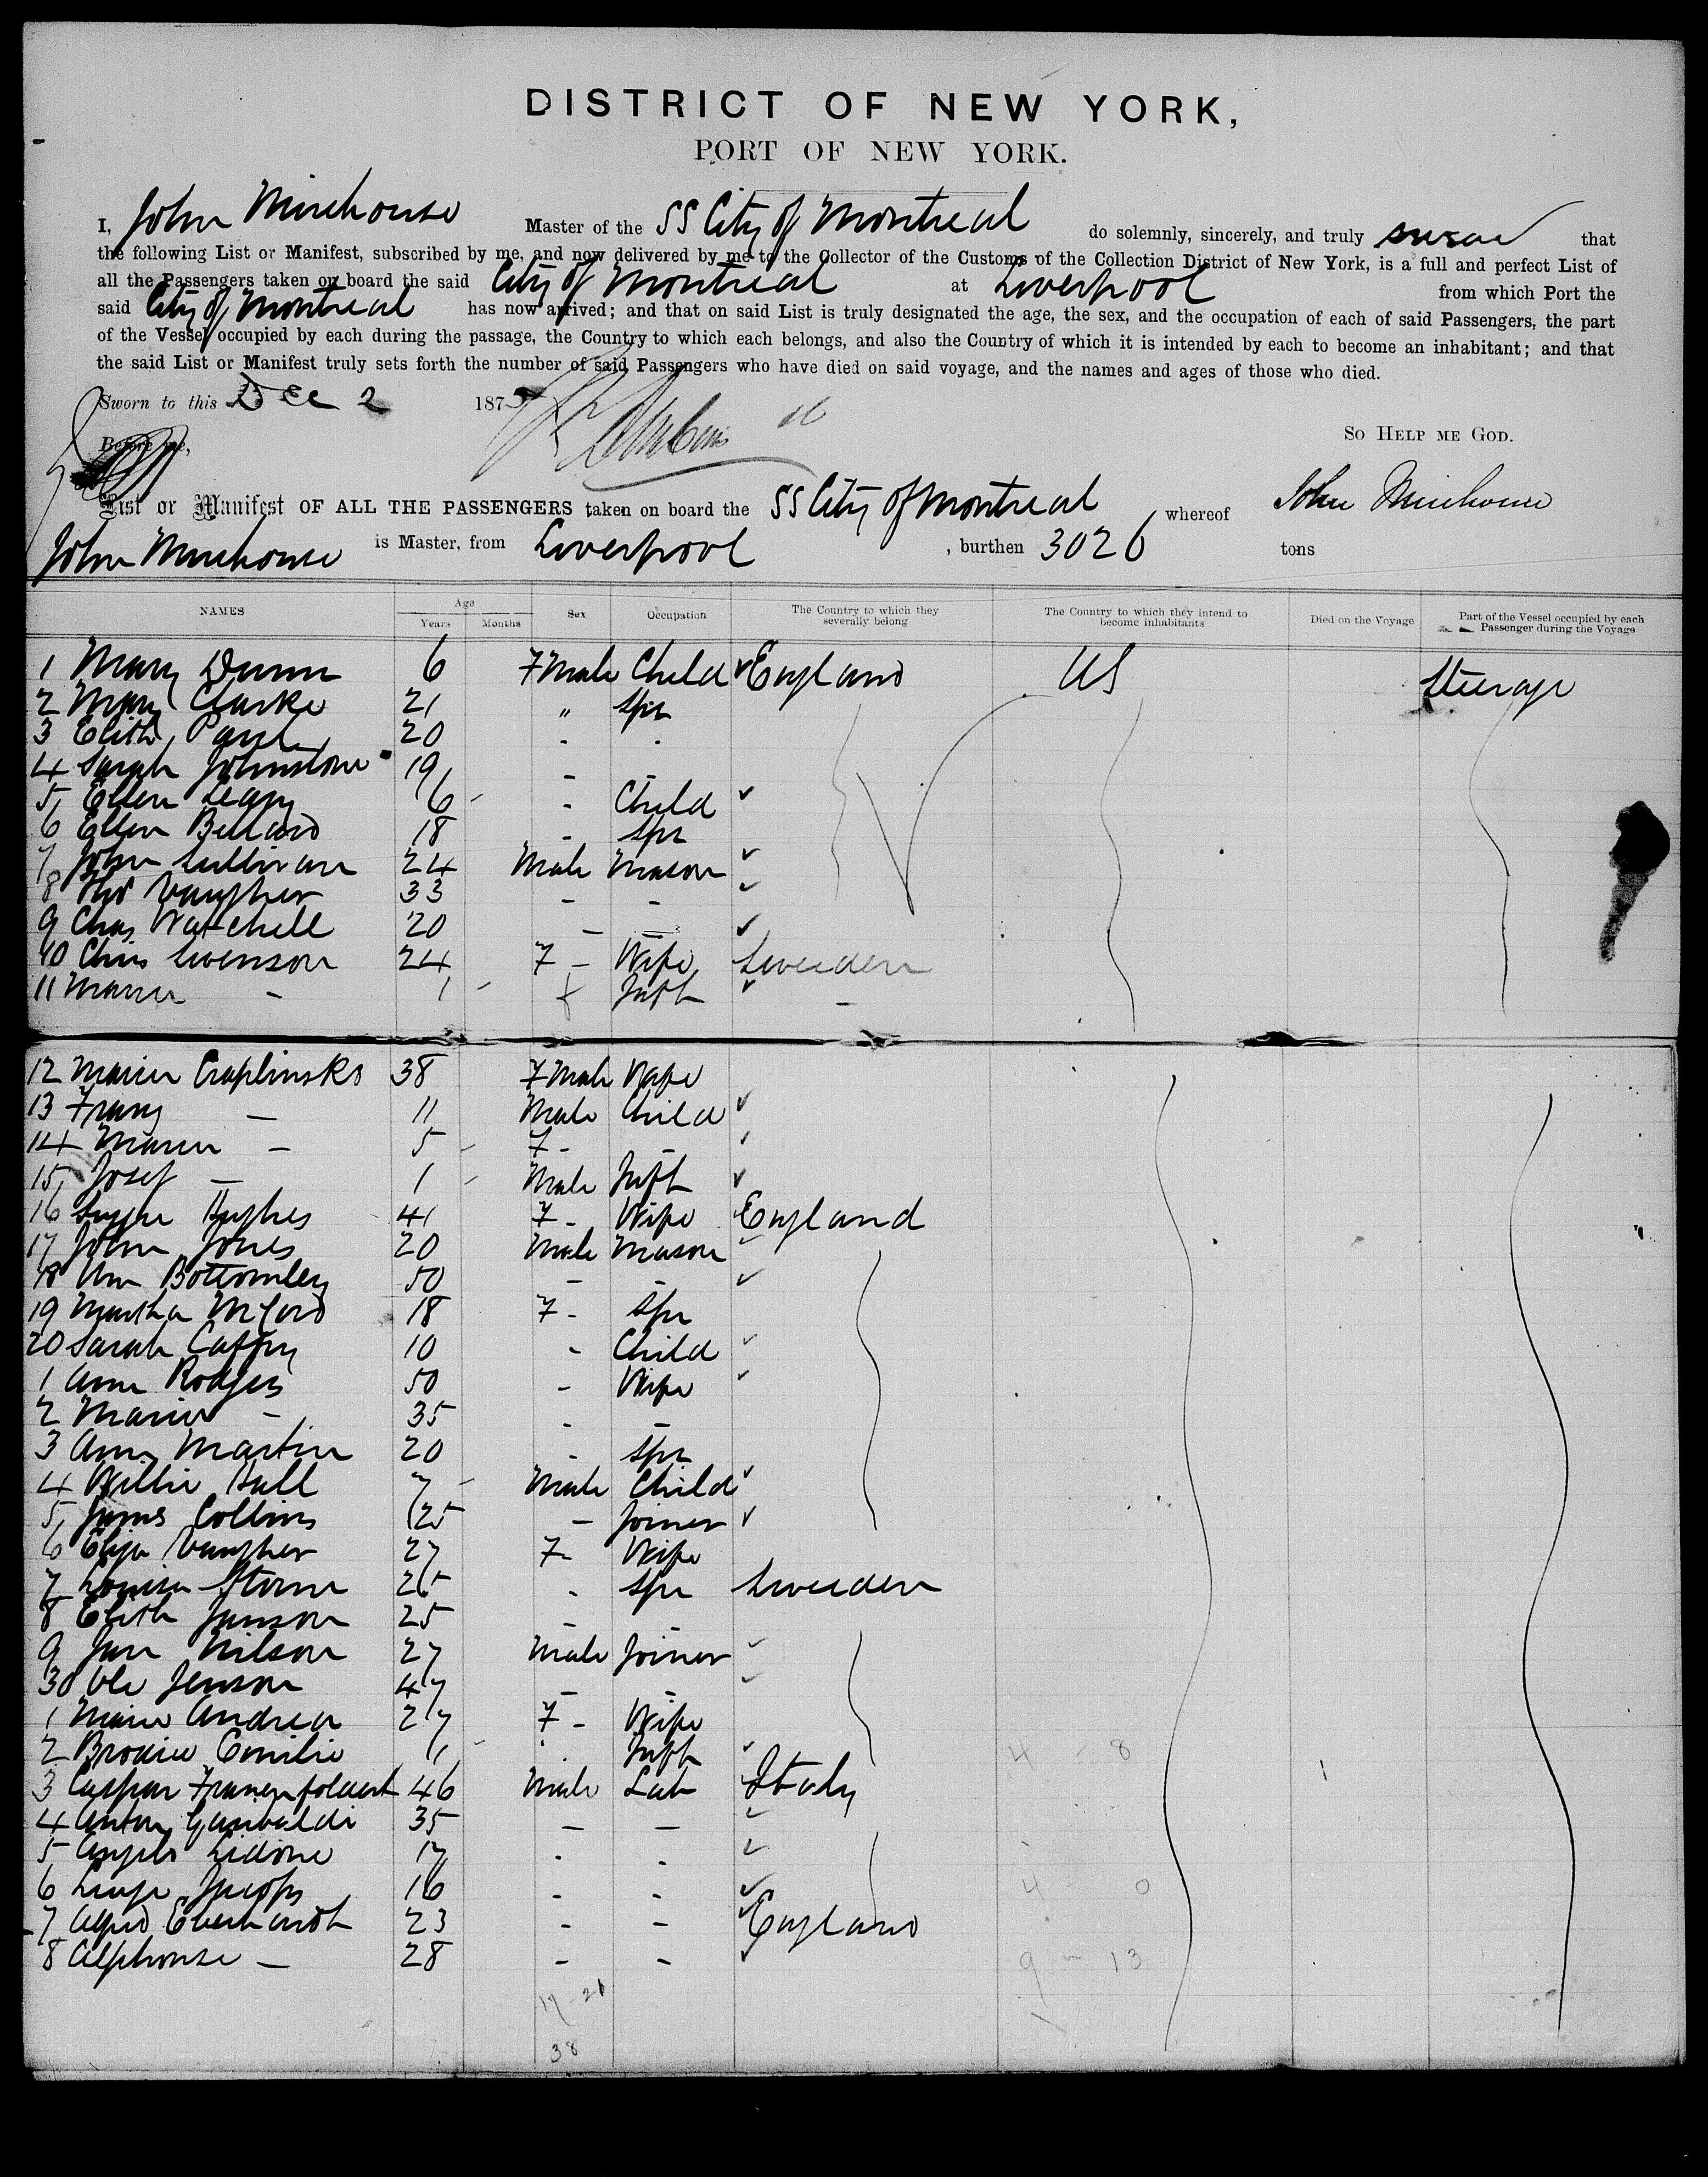 DISTRICT OF NEW YORK,
PORT OF NEW YORK.
I, John Mirehouse Master of the SS City of Montreal do solemnly, sincerely, and truly swear that
the following List or Manifest, subscribed by me, and now delivered by me to the Collector of the Customs of the Collection District of New York, is a full and perfect List of
all the Passengers taken on board the said City of Montreal at Liverpool from which Port the
said City of Montreal has now arrived; and that on said List is truly designated the age, the sex, and the occupation of each of said Passengers, the part
of the Vessel occupied by each during the passage, the Country to which each belongs, and also the Country of which it is intended by each to become an inhabitant; and that
the said List or Manifest truly sets forth the number of said Passengers who have died on said voyage, and the names and ages of those who died.
Sworn to this Dec 2 187
Before me,
So Help me God.
John Mirehouse
List or Manifest OF ALL THE PASSENGERS taken on board the SS City of Montreal whereof
John Mirehouse is Master, from Liverpool , burthen 3026 tons
NAMES Age Years Months Sex Occupation The Country to which they severally belong The Country to which they intend to become inhabitants Died on the Voyage Part of the Vessel occupied by each Passenger during the Voyage
1 Mary Dunn 6 7male Child England US Steerage
2 Mary Clarke 21 " Spr
3 Elith 20
4 Sarah Johnstone 19
5 Ellen Leary 6 Child
6 Ellen 18 - Spr
7 John Sullivan 24 Male Mason
8 Tho Vaugher 33 - -
9 Chas Watchell 20 - -
10 Chris Swenson 24 7 - Wife Sweeden
11 Maria - 1 f Inft -
12 Maria Craplinsko 38 7male Wife
13 Franz - 11 Male Child
14 Maria - 5 7 - -
15 Josef - 1 Male Inft
16 Hughes 41 7 - Wife England
17 John Jones 20 Male Mason
18 Wm Bottomley 50 - -
19 Martha 18 7 - Spr
20 Sarah Caffry 10 - Child
1 Ann Rodgers 50 - Wife
2 Maria - 35 - -
3 Ann Martin 20 - Spr
4 Willie Hall 7 Male Child
5 James Collins 25 - Joiner
6 Eliza Vaugher 27 7 - Wife
7 Louisa Storm 26 Spr Sweeden
8 Elith Janson 25 -
9 Jan Nilson 27 Male Joiner
30 Ole Jenson 47 - -
1 Maria Andrea 27 7 - Wife
2 Emilie 1 Inft
3 Caspar 46 Male Lab Italy
4 Antony Garibaldi 35 - -
5 Angelo 17
6 16
7 Alfred Eberhardt 23 - - England
8 Alphonse - 28 - -
4 - 8
4 0
9 - 13
17 21
38